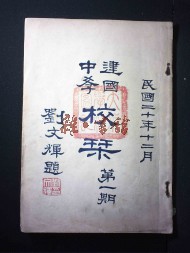 民國二十年十二月
建國
中學
校栞
第一期
劉文輝題